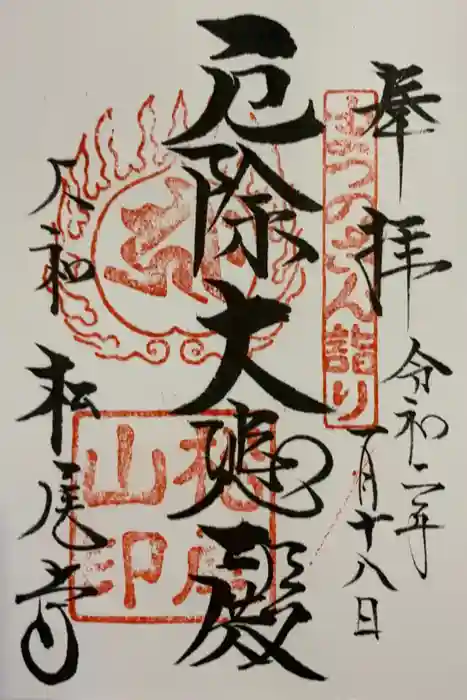 奉拝
令和二年
一月十八日
まつのさん詣り
厄除大黒殿
大和 松尾寺
松尾山印